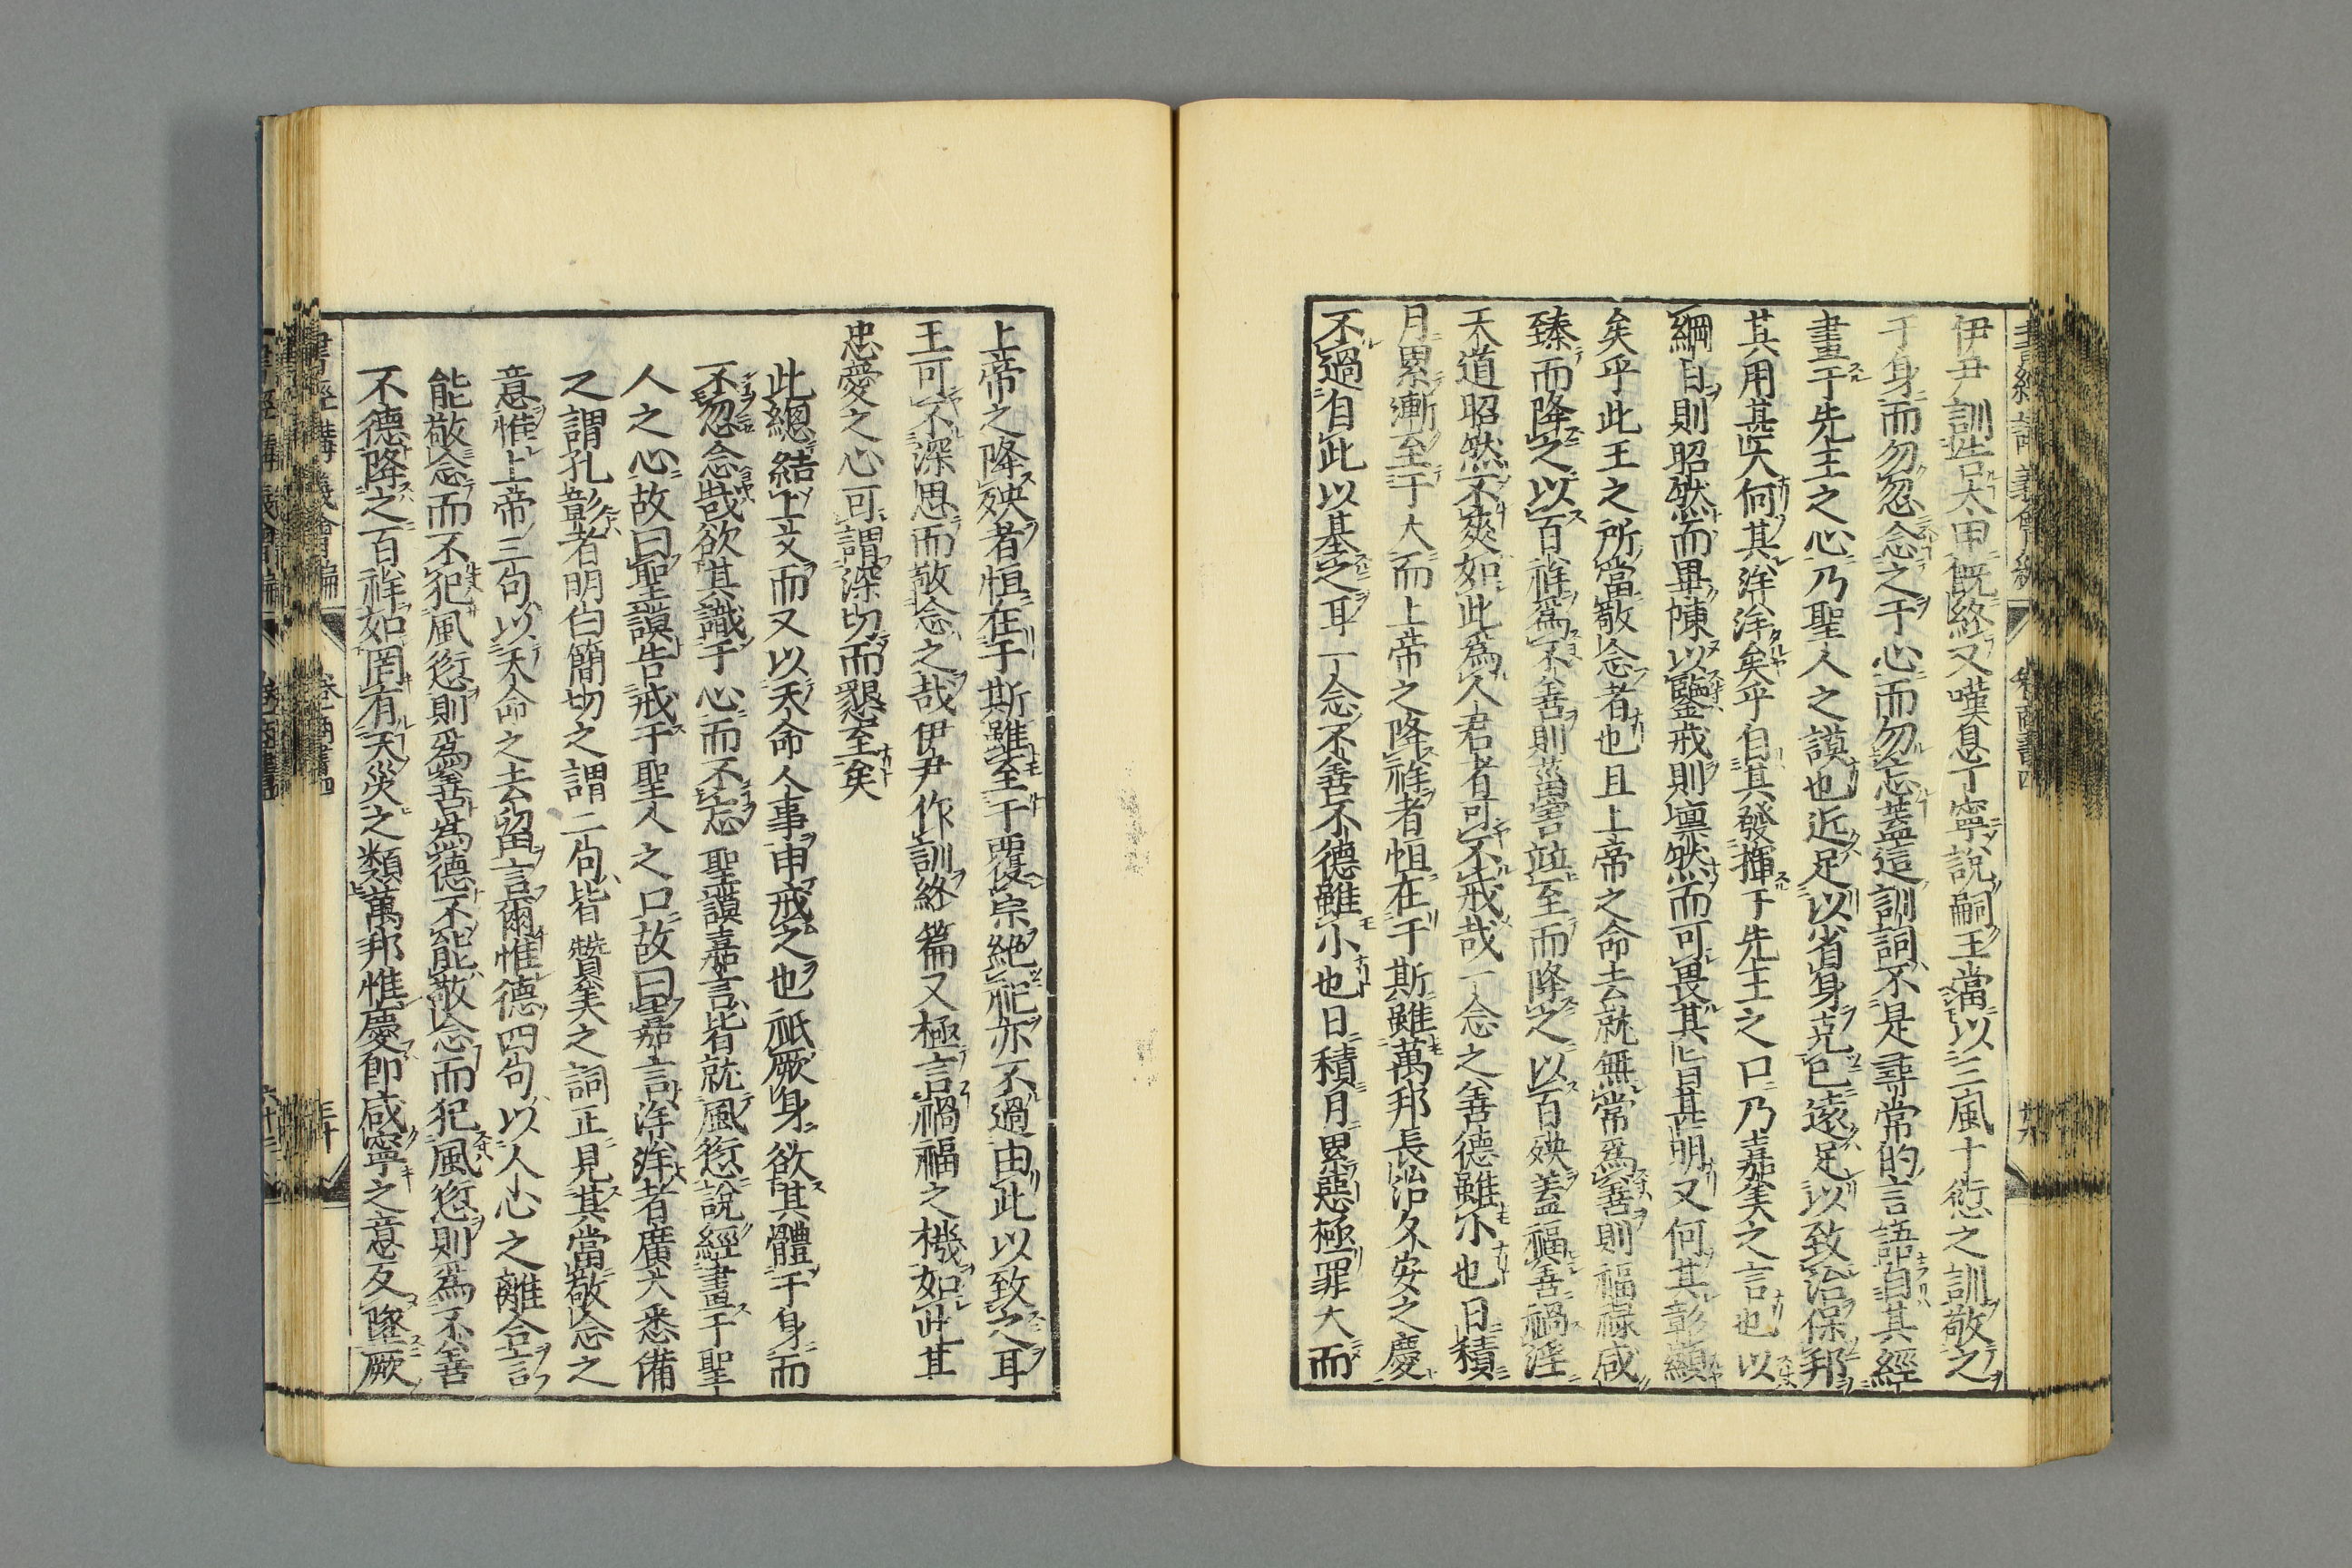 伊尹訓告太甲既終又嘆息丁寧說嗣王當以三風十愆之訓敬之
于身而勿忽念之于心而勿忘蓋這訓詞不是尋常的言語自其經
畫于先王之心乃聖人之謨也近足以省身克己遠足以致治保邦
其用甚大何其洋洋矣乎自其發揮于先王之口乃嘉美之言也以
綱目則昭然而畢陳以鑒戒則凛然而可畏其旨甚明又何其彰顯
矣乎此王之所當敬念者也且上帝之命去就無常爲善則福祿咸
臻而降之以百祥爲不善則菑害竝至而降之以百殃蓋福善禍淫
天道昭然不爽如此爲人君者可不戒哉一念之善德雖小也日積
月累漸至于大而上帝之降祥者恒在于斯雖萬邦長治久安之慶
不過自此以基之耳一念不善不德雖小也日積月累惡極罪大而
上帝之降殃者恒在于斯雖至于覆宗絕祀亦不過由此以致之耳
王可不深思而敬念之哉伊尹作訓終篇又極言禍福之機如此其
忠愛之心可謂深切而懇至矣
此總結上文而又以天命人事申戒之也祗厥身欲其體于身而
不忽念哉欲其識于心而不忘聖謨嘉言皆就風愆說經畫于聖
人之心故曰聖謨告戒于聖人之口故曰嘉言洋洋者廣大悉備
之謂孔彰者明白簡切之謂二句皆贊美之詞正見其當敬念之
意惟上帝三句以天命之去留言爾惟德四句以人心之離合言
能敬念而不犯風愆則爲善爲德不能敬念而犯風愆則爲不善
不德降之百祥如罔有天災之類萬邦惟慶即咸寧之意反墜厥
書經講義會編
卷商書四
三十